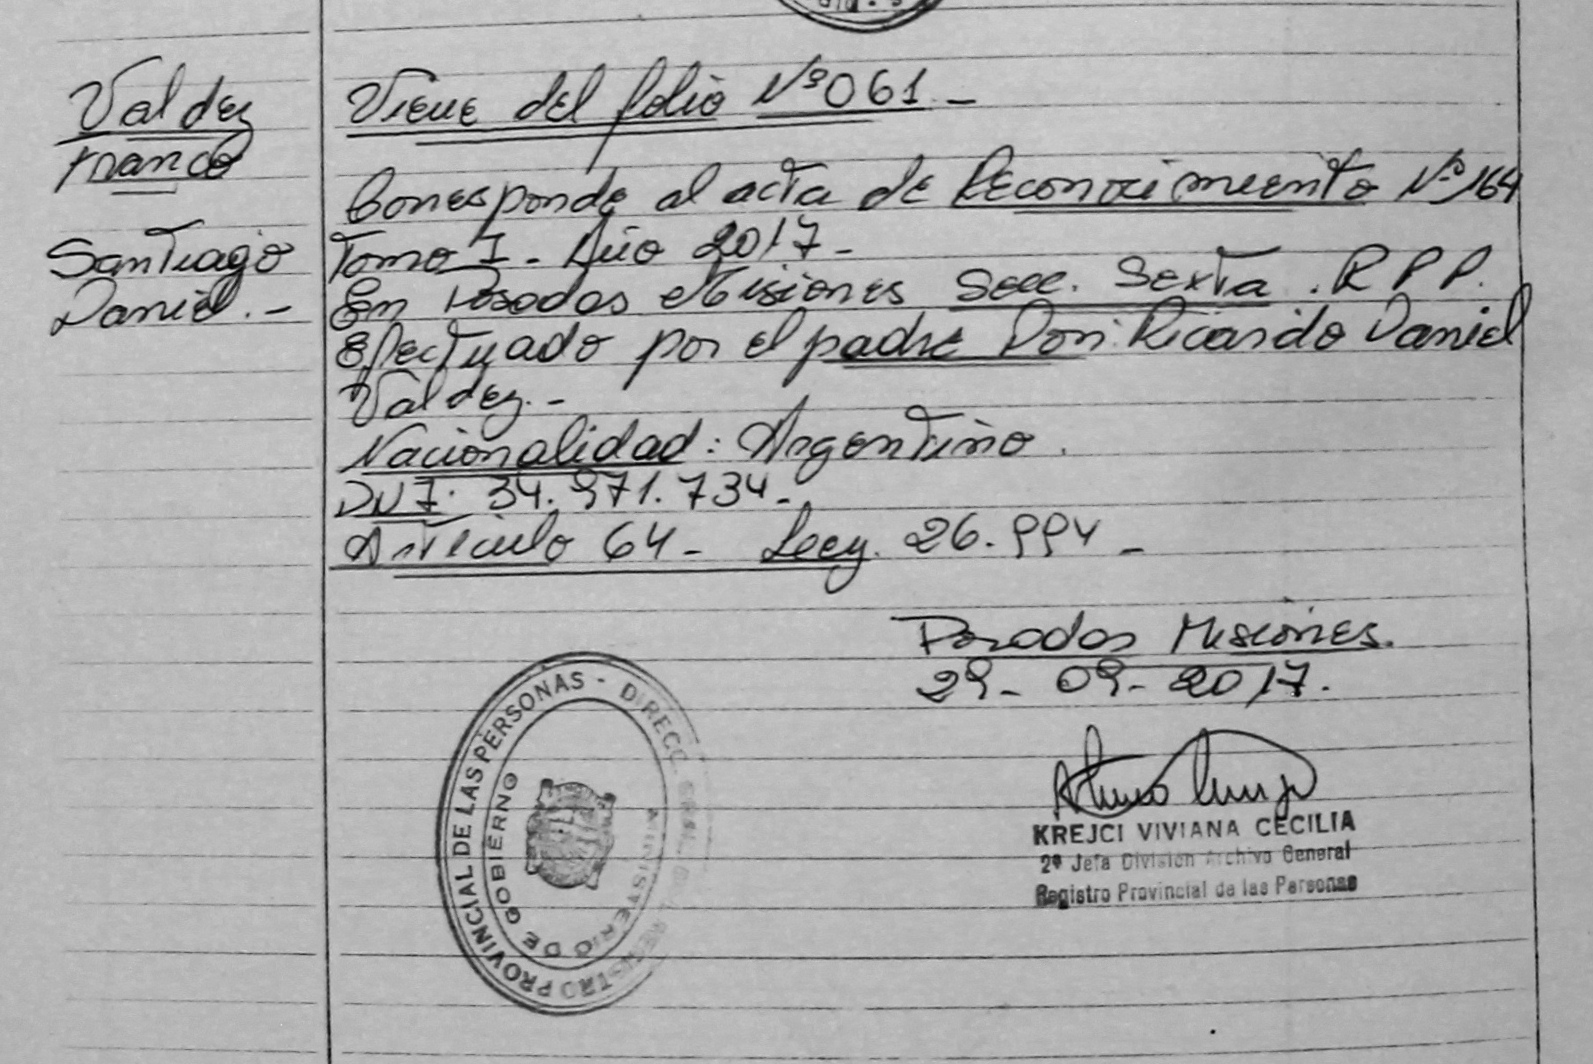 Valdez
Franco
Santiago
Daniel.-
Viene del folio Nº 061.-
Corresponde al acta de Reconocimiento Nº 164
Tomo I - Año 2017-
En Posadas Misiones Secc. Sexta. R P P.
Efectuado por el padre Don: Ricardo Daniel
Valdez.-
Nacionalidad: Argentino.
DNI: 34.971.734-
Artículo 64- Ley. 26.994-
Posadas Misiones.
29- 09- 2017.
KREJCI VIVIANA CECILIA
2ª Jefa División Archivo General
Registro Provincial de las Personas
REGISTRO PROVINCIAL DE LAS PERSONAS - DIRECC. GRAL. DEL
MINISTERIO DE GOBIERNO